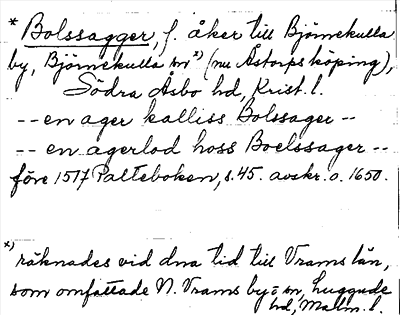 * Bolssagger, f. åker till Björnekulla
by, Björnekulla sn x) (nu Åstorps köping),
Södra Åsbo hd, Krist. l.
-- en ager kalliss Bolssager --
-- en agerlod hoss Boelssager --
före 1517 Palteboken, s. 45. avskr. o. 1650.
x) räknades vid dna tid till Vrams län,
som omfattade N. Vrams by = sn, Luggude
hd, Malm. l.